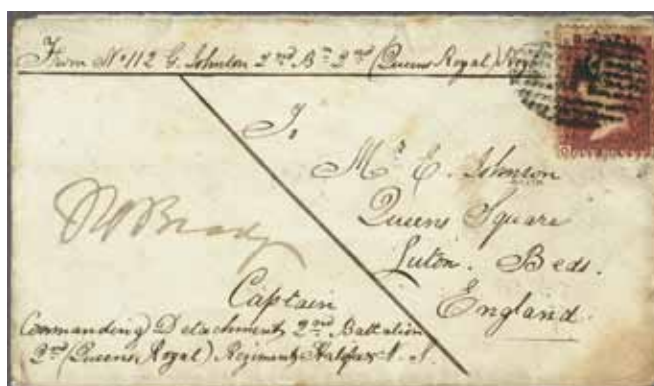 From No 112 G. Johnson 2nd Bn 2nd (Queens Royal)
To
Mr E. Johnson
Queens Square
Luton. Beds.
England.
Captain
Commanding Detachment 2nd Battalion
2nd (Queens Royal) Regiment Halifax N. S.